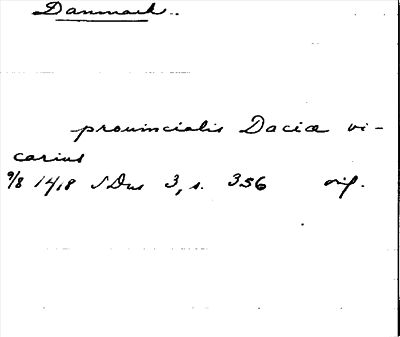 Danmark.
provincialis Daciæ vi-
carius
9/8 1418 SDns 3, s. 356 orig.